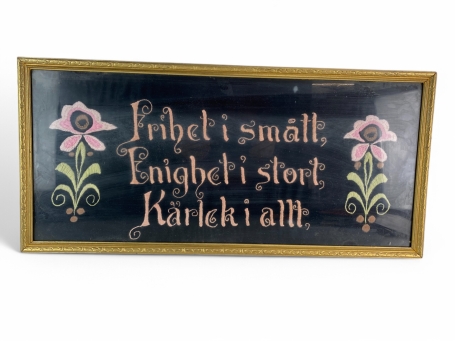 Frihet i smått,
Enighet i stort,
Kärlek i allt,